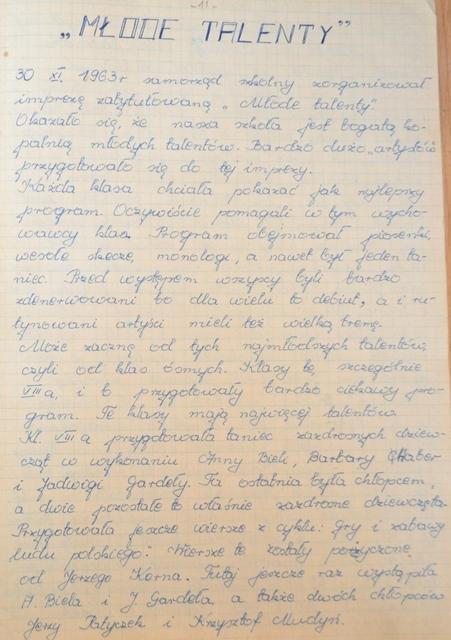 - 11 -
„MŁODE TALENTY”
30 XI. 1963 r samorząd szkolny zorganizował
imprezę zatytułowaną „Młode talenty".
Okazało się, że nasza szkoła jest bogatą ko-
palnią młodych talentów. Bardzo dużo „artystów"
przygotowało się do tej imprezy.
Każda klasa chciała pokazać jak najlepszy
program. Oczywiście pomagali w tym wycho-
wawcy klas. Program obejmował piosenki,
wesołe skecze, monologi, a nawet był jeden ta-
niec. Przed występem wszyscy byli bardzo
zdenerwowani bo dla wielu to debiut, a i ru-
tynowani artyści mieli też wielką tremę.
Może zacznę od tych najmłodszych talentów,
czyli od klas ósmych. Klasy te, szczególnie
VIII a, i b przygotowały bardzo ciekawy pro-
gram. Te klasy mają najwięcej talentów.
Kl. VIII a przygotowała taniec zazdrosnych dziew-
cząt w wykonaniu Anny Bieli, Barbary
i Jadwigi Gardeły. Ta ostatnia była chłopcem,
a dwie pozostałe to właśnie zazdrosne dziewczęta.
Przygotowała jeszcze wiersze z cyklu: Gry i zabawy
ludu polskiego: Wiersze te zostały pożyczone
od Jerzego Kerna. Tutaj jeszcze raz wystąpiła
A. Biela i J. Gardeła, a także dwóch chłopców
Jerzy Patyczek i Krzysztof Mudyń.